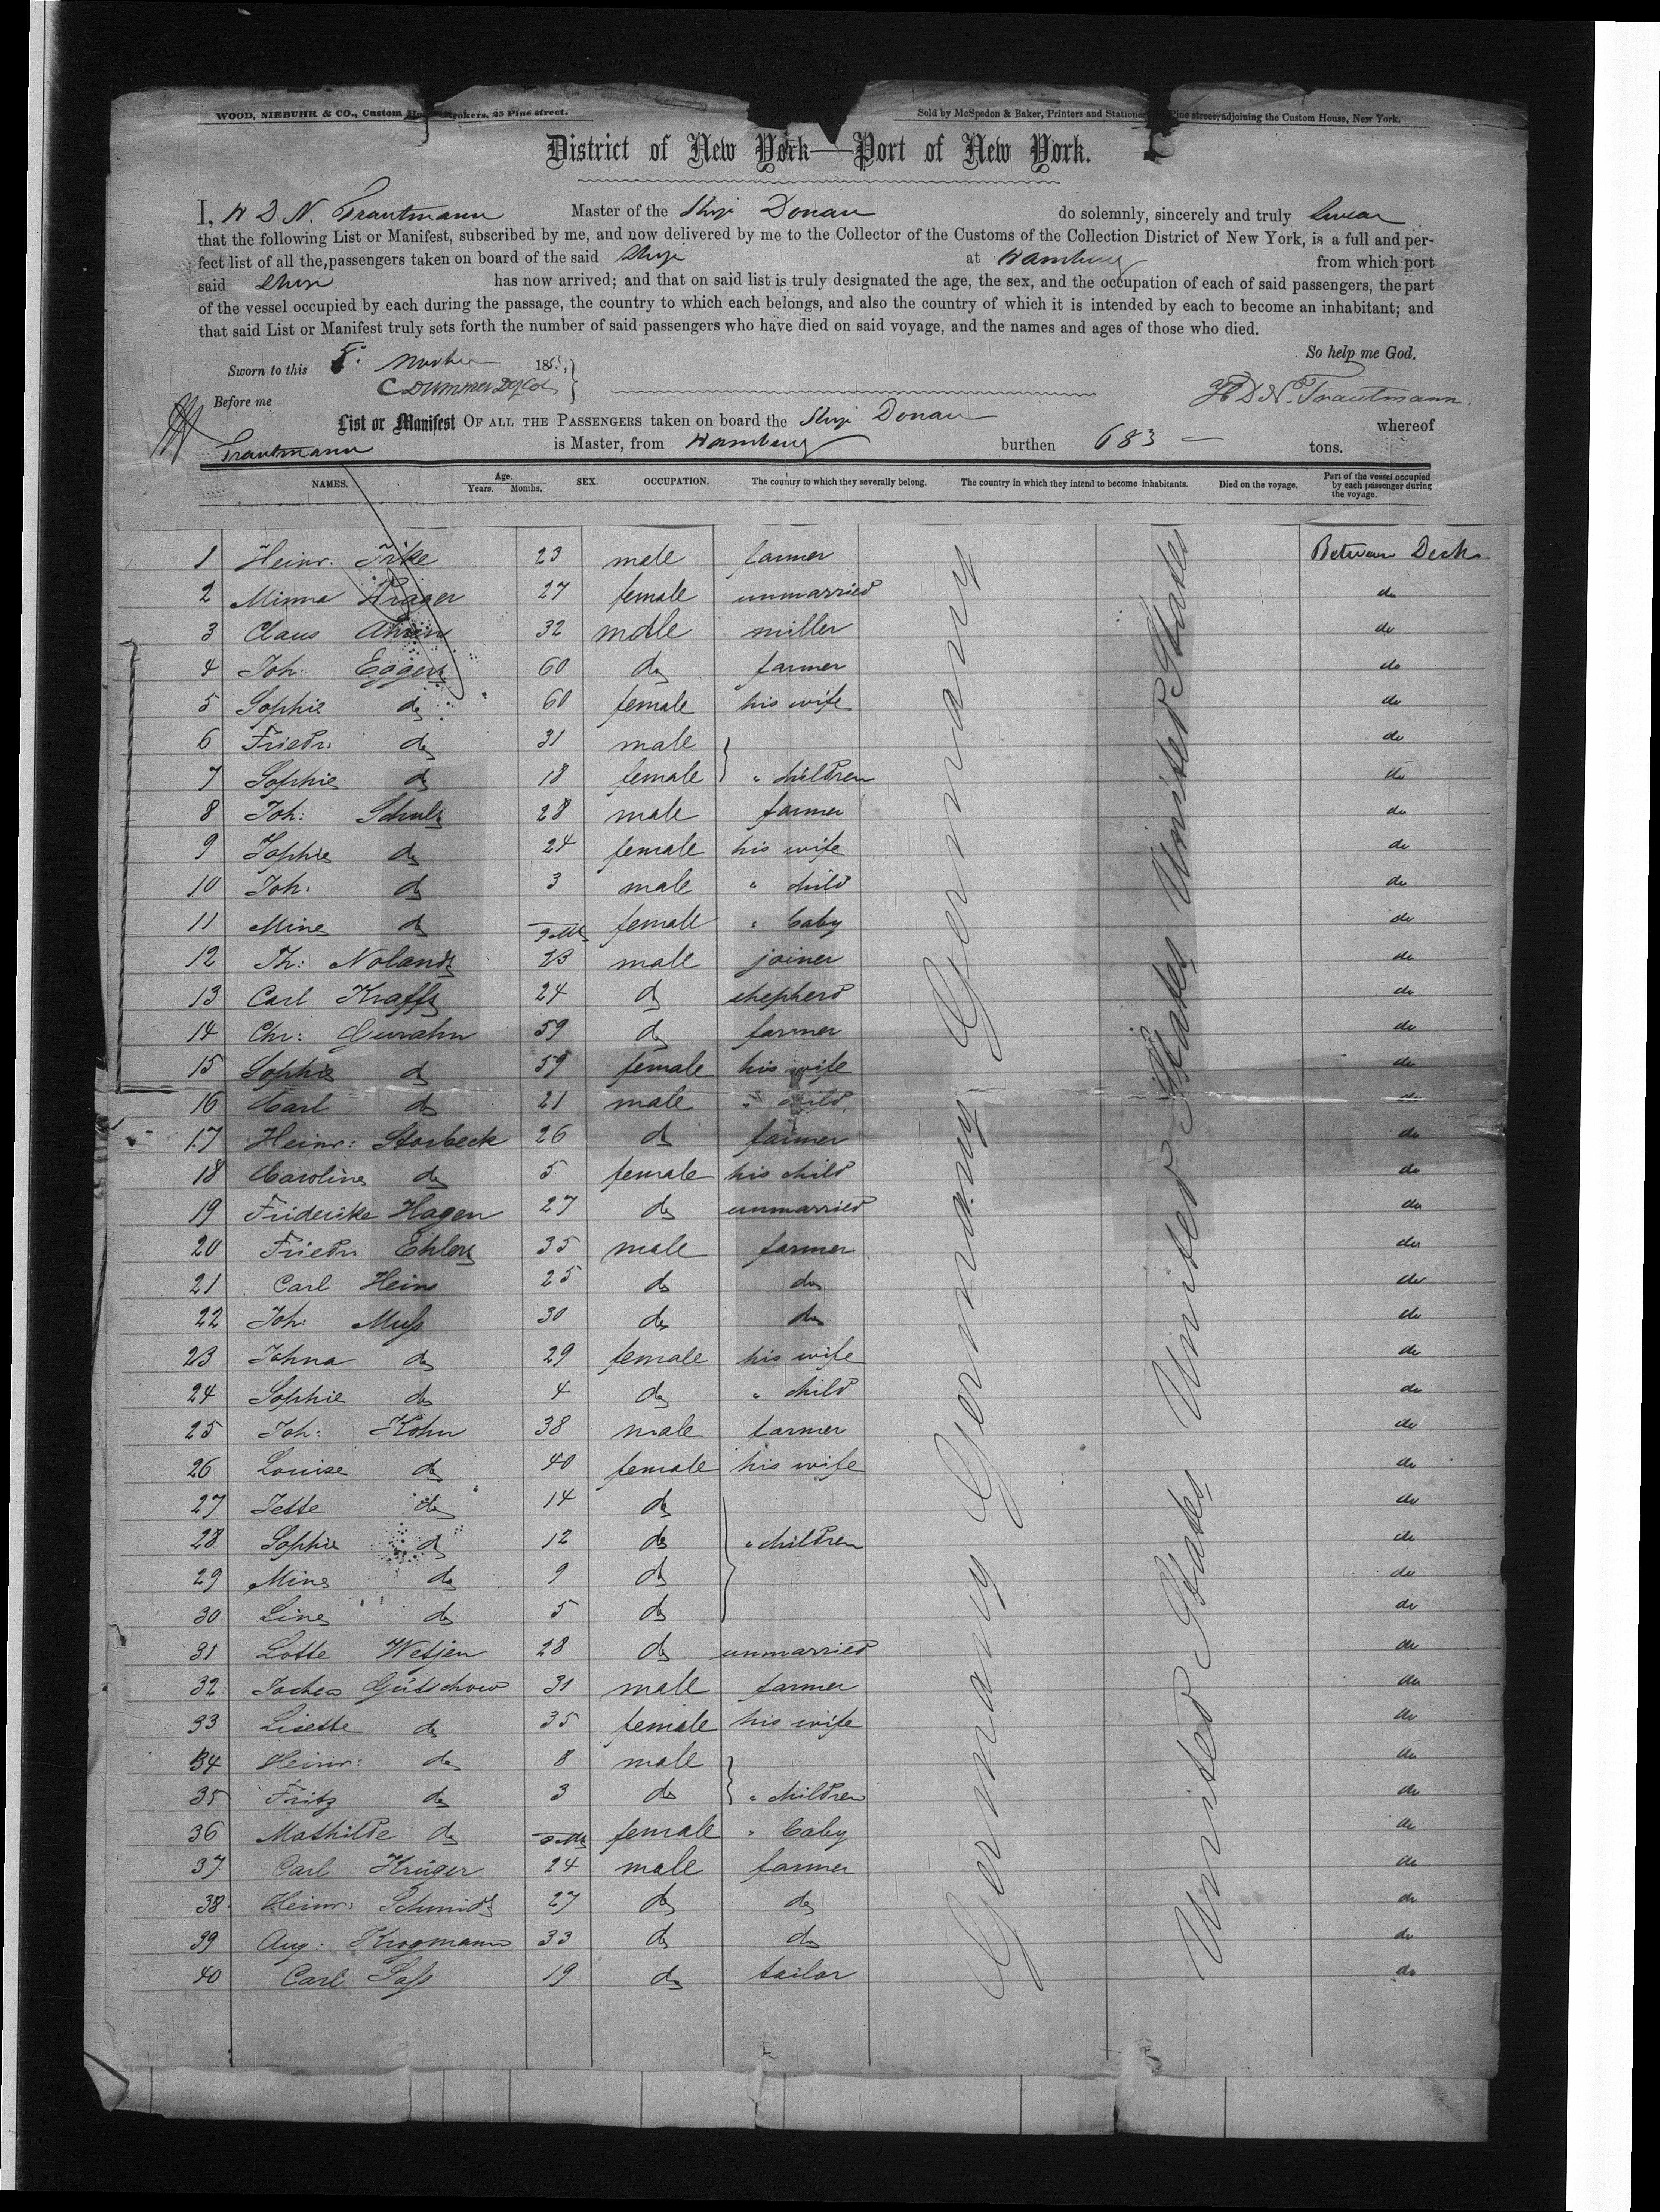 WOOD, NIEBUHR & CO., Custom House Brokers. 25 Pine street. Sold by McSpedon & Baker, Printers and Stationers Pine street, adjoining the Custom House, New York.
District of New York—Port of New York.
I, H D N. Trautmann Master of the Ship Donau do solemnly, sincerely and truly Swear
that the following List or Manifest, subscribed by me, and now delivered by me to the Collector of the Customs of the Collection District of New York, is a full and per-
fect list of all the passengers taken on board of the said Ship at Hamburg from which port
said Ship has now arrived; and that on said list is truly designated the age, the sex, and the occupation of each of said passengers, the part
of the vessel occupied by each during the passage, the country to which each belongs, and also the country of which it is intended by each to become an inhabitant; and
that said List or Manifest truly sets forth the number of said passengers who have died on said voyage, and the names and ages of those who died.
So help me God.
Sworn to this 8. 18
Before me C Dummer H D N. Trautmann.
List or Manifest OF ALL THE PASSENGERS taken on board the Ship Donau whereof
Trautmann is Master, from Hamburg burthen 683 tons.
NAMES. Age. Years. Months. SEX. OCCUPATION. The country to which they severally belong. The country in which they intend to become inhabitants. Died on the voyage. Part of the vessel occupied by each passenger during the voyage.
1 Heinr. 23 male farmer Between Deck
2 Minna 27 female unmarried do
3 Claus 32 male miller do
4 Joh: Eggers 60 do farmer do
5 Sophie do 60 female his wife do
6 Friedr. do 31 male do
7 Sophie do 18 female " children do
8 Joh: Schult 28 male farmer do
9 Sophie do 24 female his wife do
10 Joh. do 3 male " child do
11 Mine do female " baby do
12 Th: Nolandt 23 male joiner do
13 Carl Krafft 24 do shepherd do
14 Chr: Gurahn 59 do farmer do
15 Sophie do 59 female his wife do
16 Carl do 21 male " child do
17 Heinr: Storbeck 26 do farmer do
18 Caroline do 5 female his child do
19 Friderike Hagen 27 do unmarried do
20 Friedr. Ehlers 35 male farmer do
21 Carl Hein 25 do do do
22 Joh. Muss 30 do do do
23 Johna do 29 female his wife do
24 Sophie do 4 do " child do
25 Joh: Kohn 38 male farmer do
26 Louise do 40 female his wife do
27 Jette do 14 do do
28 Sophie do 12 do " children do
29 Mine do 9 do do
30 Line do 5 do do
31 Lotte Wetjen 28 do unmarried do
32 Jochen Gütschow 31 male farmer do
33 Lisette do 35 female his wife do
34 Heinr: do 8 male do
35 Fritz do 3 do " children do
36 Mathilde do female " baby do
37 Carl Krüger 24 male farmer do
38 Heinr. Schmidt 27 do do do
39 Aug: Krogmann 33 do do do
40 Carl Sass 19 do tailor do
Germany Germany Germany
United States United States United States